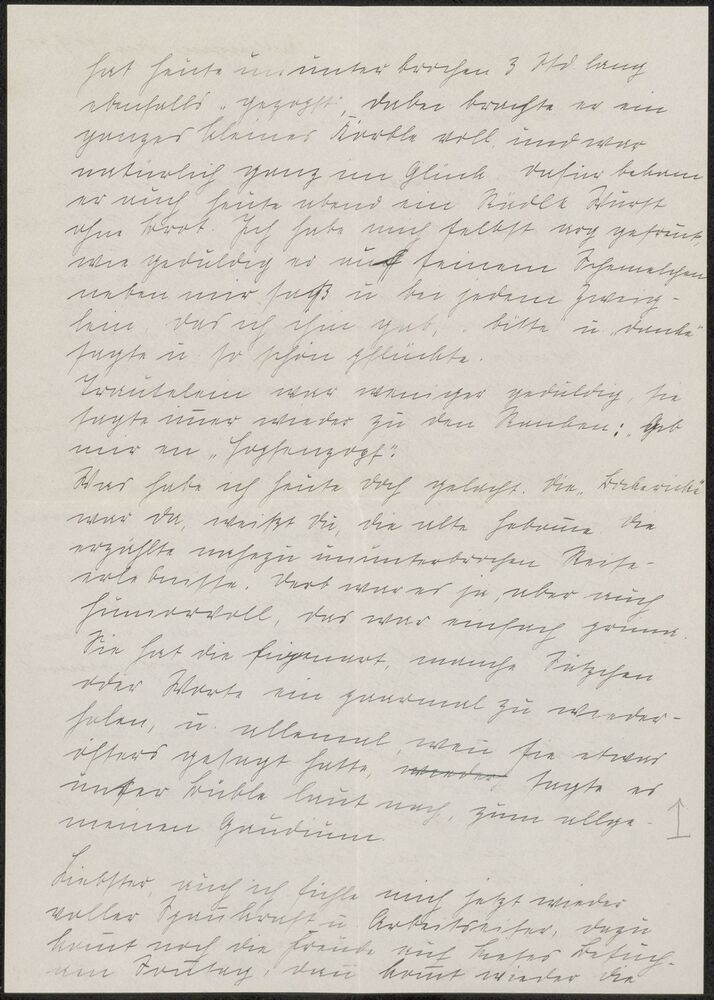 hat heute ununterbrochen 3 Std lang
ebenfalls „gezopft“, dabei brachte er ein
ganzes kleines Körble voll, und war
natürlich ganz im Glück. Dafür bekam
er auch heute abend ein Rädle Wurst
ohne Brot. Ich habe mich selbst arg gefreut,
wie geduldig er auf seinem Schemelchen
neben mir saß u. bei jedem Zweig-
lein, das ich ihm gab, „bitte“ u. „danke“
sagte u. so schön pflückte.
Trautelein war weniger geduldig, sie
sagte immer wieder zu den Rauben: „Geb
mir en „Hopfenzopf“.
Was habe ich heute doch gelacht. Die
war da, weißt Du, die alte Hebamme. Die
erzählte nahezu ununterbrochen Reise-
erlebnisse. Derb war es ja, aber auch
humorvoll, das war einfach prima.
Sie hat die Eigenart, manche Sätzchen
oder Worte ein paarmal zu wieder-
holen, u. allemal, wenn sie etwas
öfters gesagt hatte, sagte es
unser Büble laut nach, zum allge-
meinen Gaudium.
Liebster, auch ich fühle mich jetzt wieder
voller Spannkraft u. Arbeitseifer, dazu
kommt noch die Freude auf Besuch
am Sonntag, dann kommt wieder die